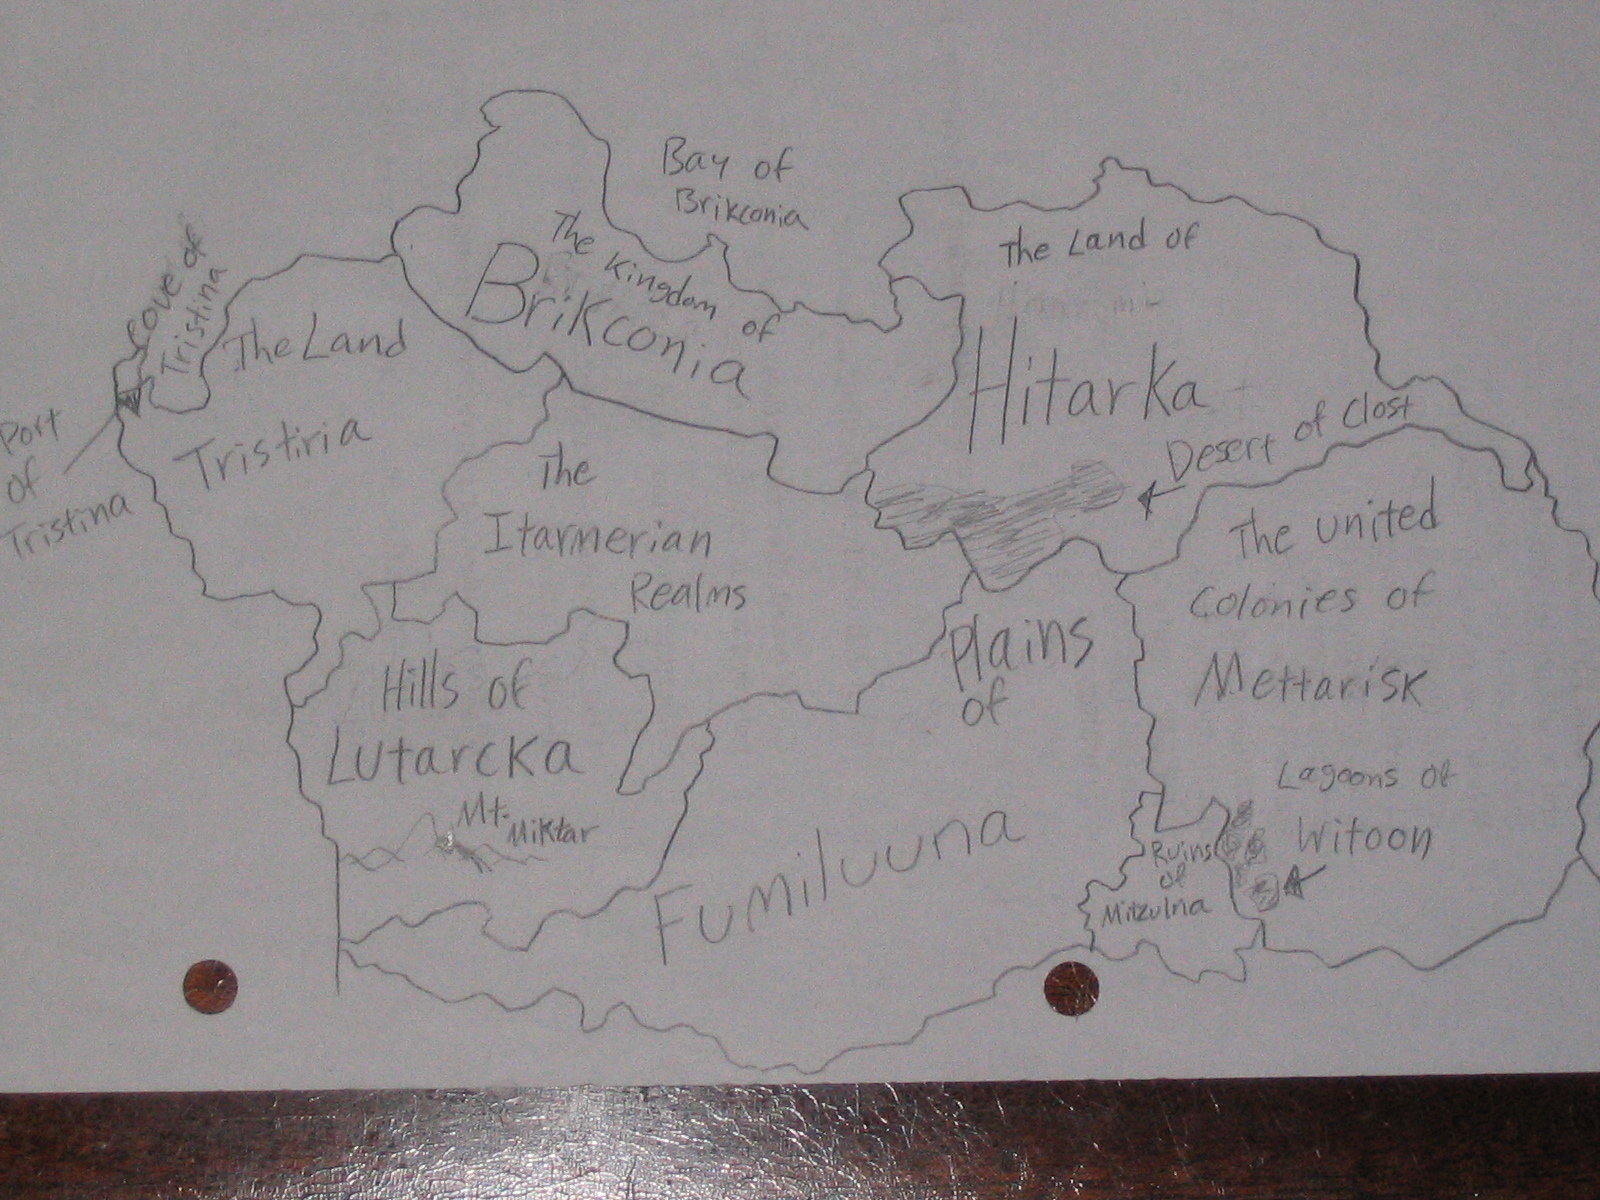 Bay of
Brikconia
The Kingdom of
Brikconia
The Land of
Hitarka
Desert of Clost
Cove of
Tristina
The Land
Tristiria
Port
of
Tristina
The
Itarmerian
Realms
The United
Colonies of
Mettarisk
Plains
of
Fumiluuna
Hills of
Lutarcka
Mt.
Miktar
Lagoons of
Witoon
Ruins
of
Mitzulna